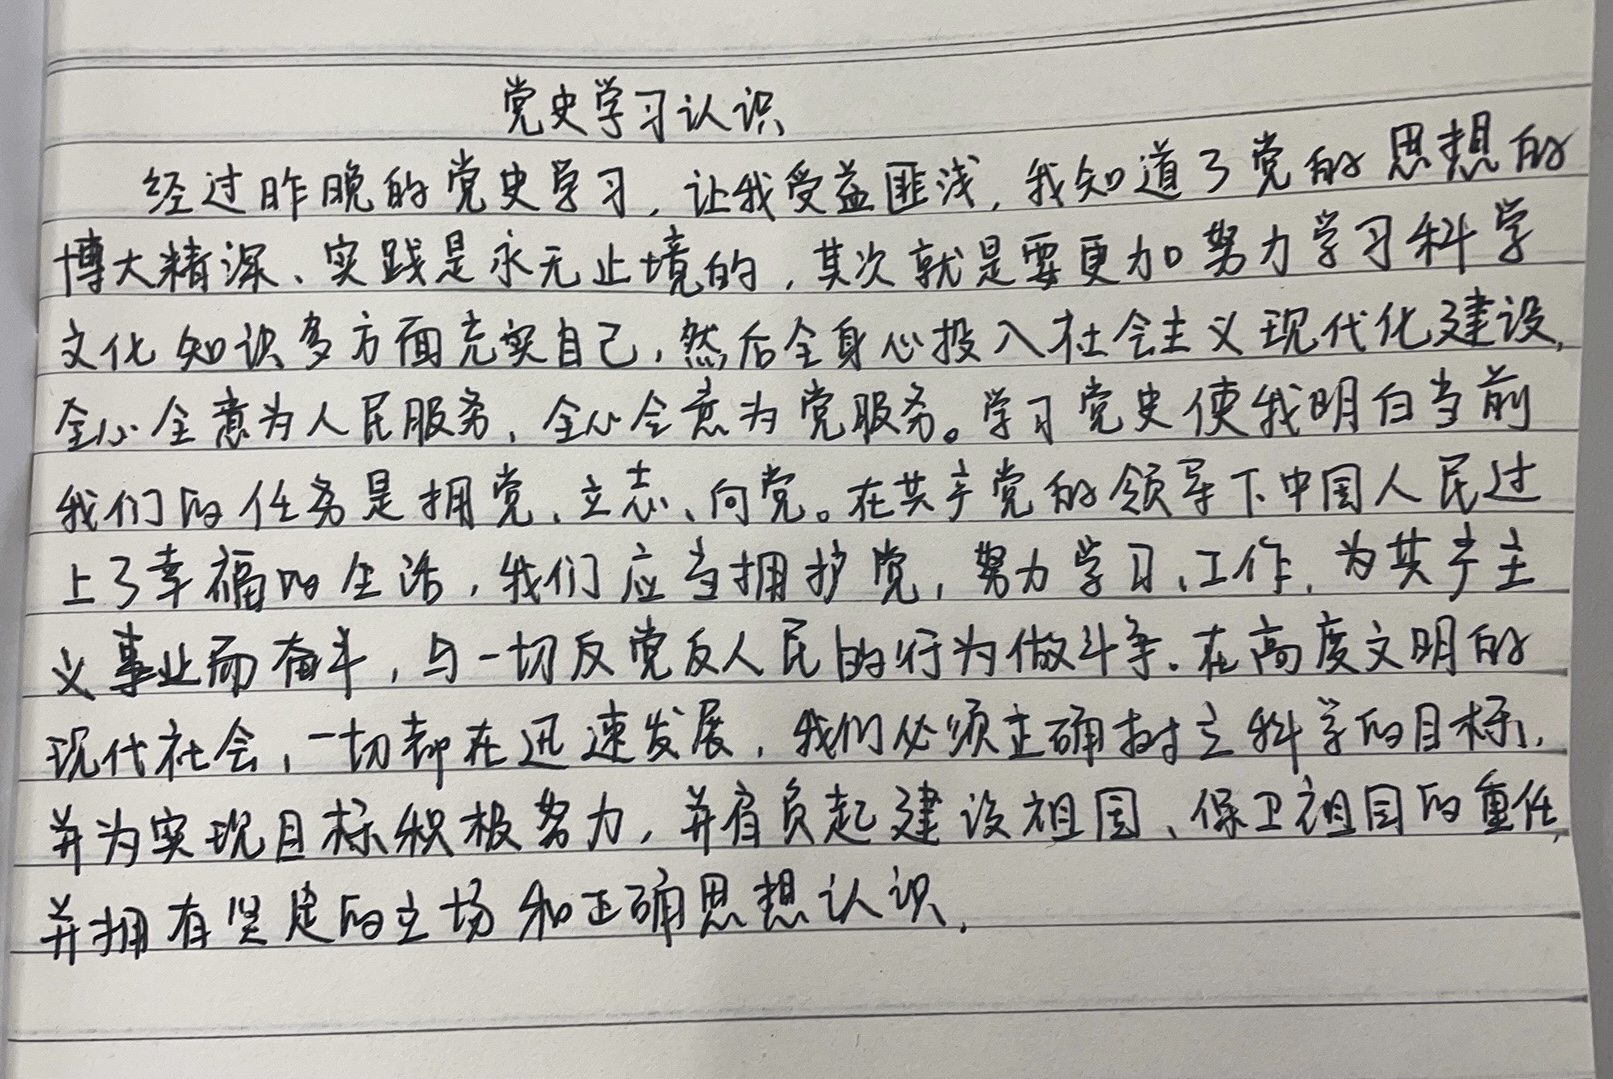 党史学习认识
经过昨晚的党史学习，让我受益匪浅，我知道了党的思想的
博大精深、实践是永无止境的，其次就是要更加努力学习科学
文化知识多方面充实自己，然后全身心投入社会主义现代化建设，
全心全意为人民服务，全心全意为党服务。学习党史使我明白当前
我们的任务是拥党、立志、向党。在共产党的领导下中国人民过
上了幸福的生活，我们应当拥护党，努力学习、工作，为共产主
义事业而奋斗，与一切反党反人民的行为做斗争。在高度文明的
现代社会，一切都在迅速发展，我们必须正确树立科学的目标，
并为实现目标积极努力，并肩负起建设祖国、保卫祖国的重任，
并拥有坚定的立场和正确思想认识，